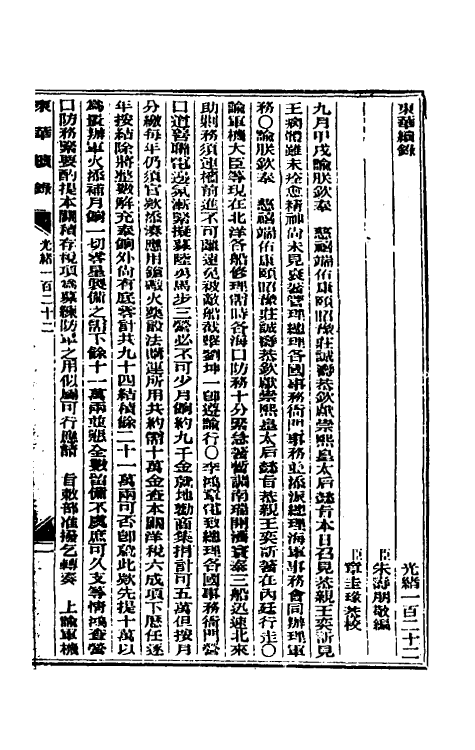 東華續錄　光緒一百二十二
臣朱壽朋敬編
臣章圭瑑恭校
九月甲戌諭朕欽奉　慈禧端佑康頤昭豫莊誠壽恭欽獻崇熙皇太后懿旨本日召見恭親王奕訢見
王病體雖未痊愈精神尚未見衰著管理總理各國事務衙門事務並添派總理海軍事務會同辦理軍
務○諭朕欽奉　慈禧端佑康頤昭豫莊誠壽恭欽獻崇熙皇太后懿旨恭親王奕訢著在內廷行走○
諭軍機大臣等現在北洋各船修理需時各海口防務十分緊急著暫調南瑞開濟寰泰三船迅速北來
助剿務須連檣前進不可離遠免被敵船截擊劉坤一即遵諭行○李鴻章電致總理各國事務衙門營
口道善聯電邊氛漸緊擬募陸勇馬步三營必不可少月餉約九千金就地勸商集捐計可五萬但按月
分繳每年仍須官款添湊應用鎗礮火藥設法購運所用共約需十萬金查本關洋稅六成項下歷任逐
年按結除將整數解充奉餉外尚有底零計共九十四結積餘二十一萬兩可否即於此款先提十萬以
為撥辦軍火添補月餉一切客星製備之需下餘十一萬兩並懇全數留備不虞庶可久支等情鴻查營
口防務緊要酌提本關積存稅項為募練防軍之用似屬可行應請　旨敕部准撥乞轉奏　上諭軍機
東華續錄　光緒一百二十二